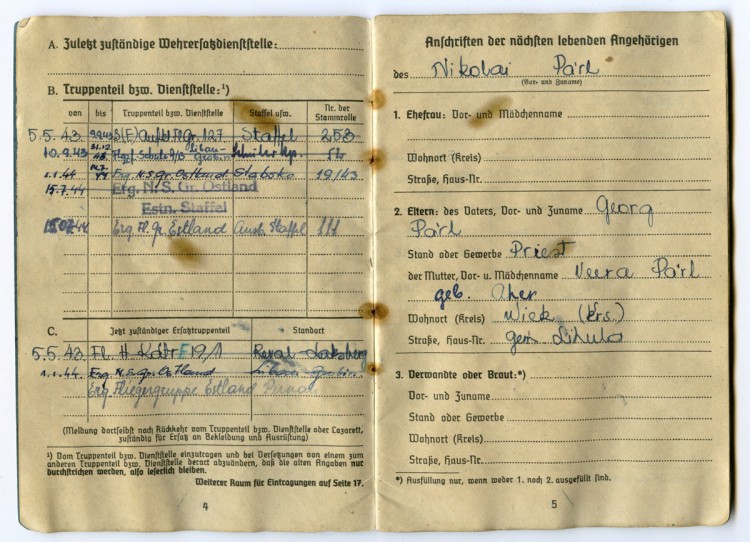 A. Zuletzt zuständige Wehrersatzdienststelle:
B. Truppenteil bzw. Dienststelle:¹)
von bis Truppenteil bzw. Dienststelle Staffel usw. Nr. der Stammrolle
5.5.43 9.9.43 S(E) Aufkl. Fl. Gr. 127 Staffel 253
10.9.43 31.12. Schule Libau-Grobin
1.1.44 14.7.44 Erg. N.S.Gr. Ostland Stabskp 19/43
15.7.44 Erg. N. S. Gr. Ostland
Estn. Staffel
15.07.44 Erg. Fl. Gr. Estland Ausb. Staffel 111
C. Jetzt zuständiger Ersatztruppenteil Standort
5.5.43 Fl. H. Kdtr E 19/1 Reval-Laksberg
1.1.44. Erg. N.S.Gr. Ostland Libau Grobin
Erg. Fliegergruppe Estland Pernau
(Meldung dortselbst nach Rückkehr vom Truppenteil bzw. Dienststelle oder Lazarett,
zuständig für Ersatz an Bekleidung und Ausrüstung)
¹) Vom Truppenteil bzw. Dienststelle einzutragen und bei Versetzungen von einem zum
anderen Truppenteil bzw. Dienststelle derart abzuändern, daß die alten Angaben nur
durchstrichen werden, also leserlich bleiben.
Weiterer Raum für Eintragungen auf Seite 17.
4
Anschriften der nächsten lebenden Angehörigen
des Nikolai Pärl
(Vor- und Zuname)
1. Ehefrau: Vor- und Mädchenname
Wohnort (Kreis)
Straße, Haus-Nr.
2. Eltern: des Vaters, Vor- und Zuname Georg
Pärl
Stand oder Gewerbe Priest
der Mutter, Vor- u. Mädchenname Veera Pärl
geb.
Wohnort (Kreis) Wiek (Krs.)
Straße, Haus-Nr. gem. Lihula
3. Verwandte oder Braut:*)
Vor- und Zuname
Stand oder Gewerbe
Wohnort (Kreis)
Straße, Haus-Nr.
*) Ausfüllung nur, wenn weder 1. noch 2. ausgefüllt sind.
5